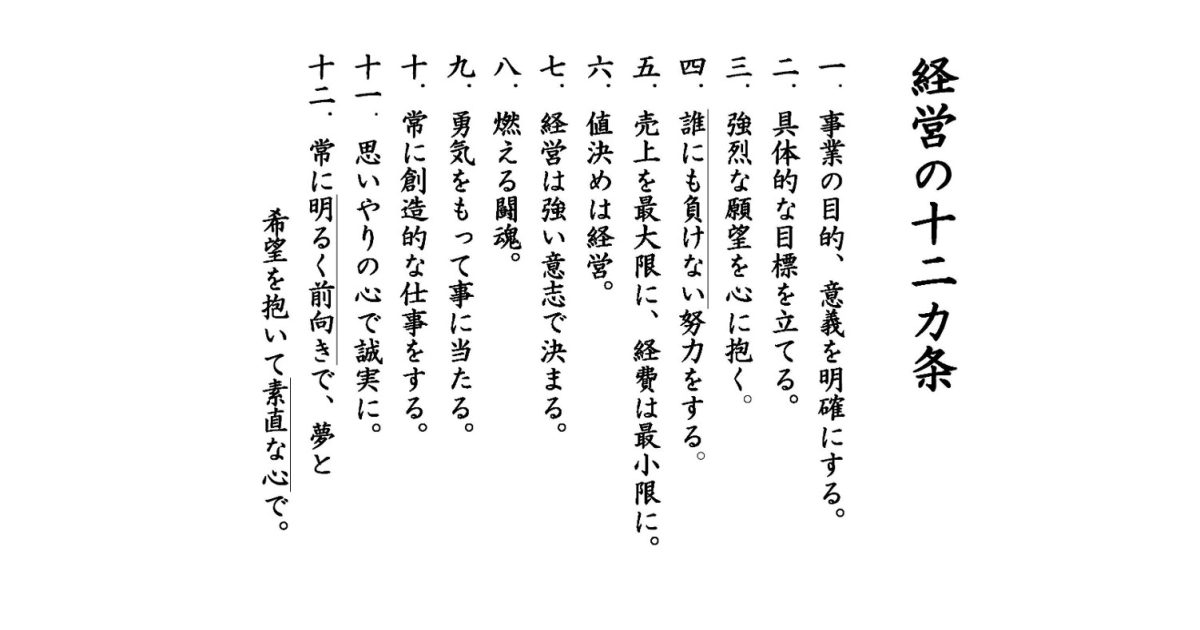 経営の十二カ条
一．事業の目的、意義を明確にする。
二．具体的な目標を立てる。
三．強烈な願望を心に抱く。
四．誰にも負けない努力をする。
五．売上を最大限に、経費は最小限に。
六．値決めは経営。
七．経営は強い意志で決まる。
八．燃える闘魂。
九．勇気をもって事に当たる。
十．常に創造的な仕事をする。
十一．思いやりの心で誠実に。
十二．常に明るく前向きで、夢と
希望を抱いて素直な心で。